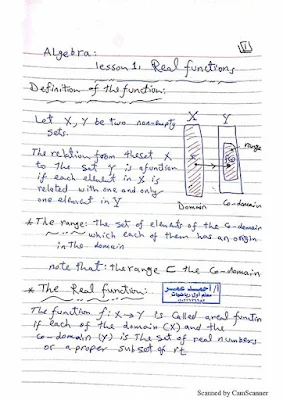 1
Algebra:
lesson 1, Real functions
Definition of the function:
Let X, Y be two non-empty
sets.
The relation from the set X
to the set Y is a function
if each element in X is
related with one and only
one element in Y
X Y
range
Domain Co-domain
* The range: the set of elements of the Co-domain
which each of them has an origin
in the domain
note that: the range ⊂ the Co-domain
* The Real function:
أ/ احمد عمر
معلم أول رياضيات
The function f: X→Y is Called a real function
if each of the domain (X) and the
co-domain (Y) is the set of real numbers
or a proper subset of it
Scanned by CamScanner